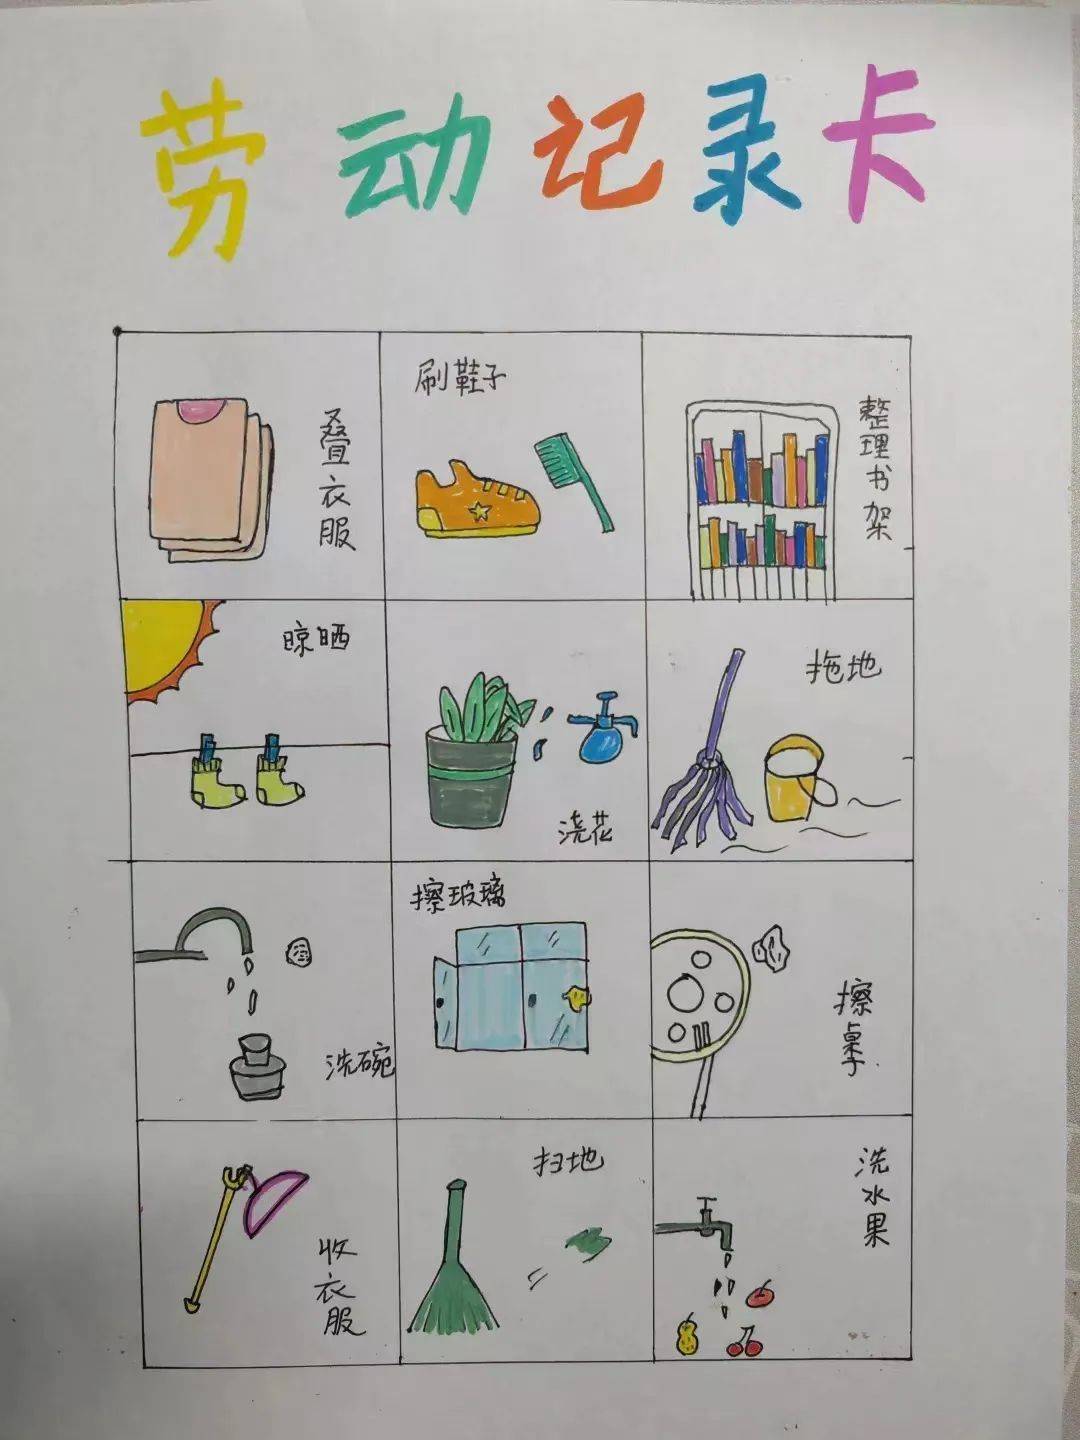 劳动记录卡
叠衣服
刷鞋子
整理书架
晾晒
浇花
拖地
洗碗
擦玻璃
擦桌子
收衣服
扫地
洗水果